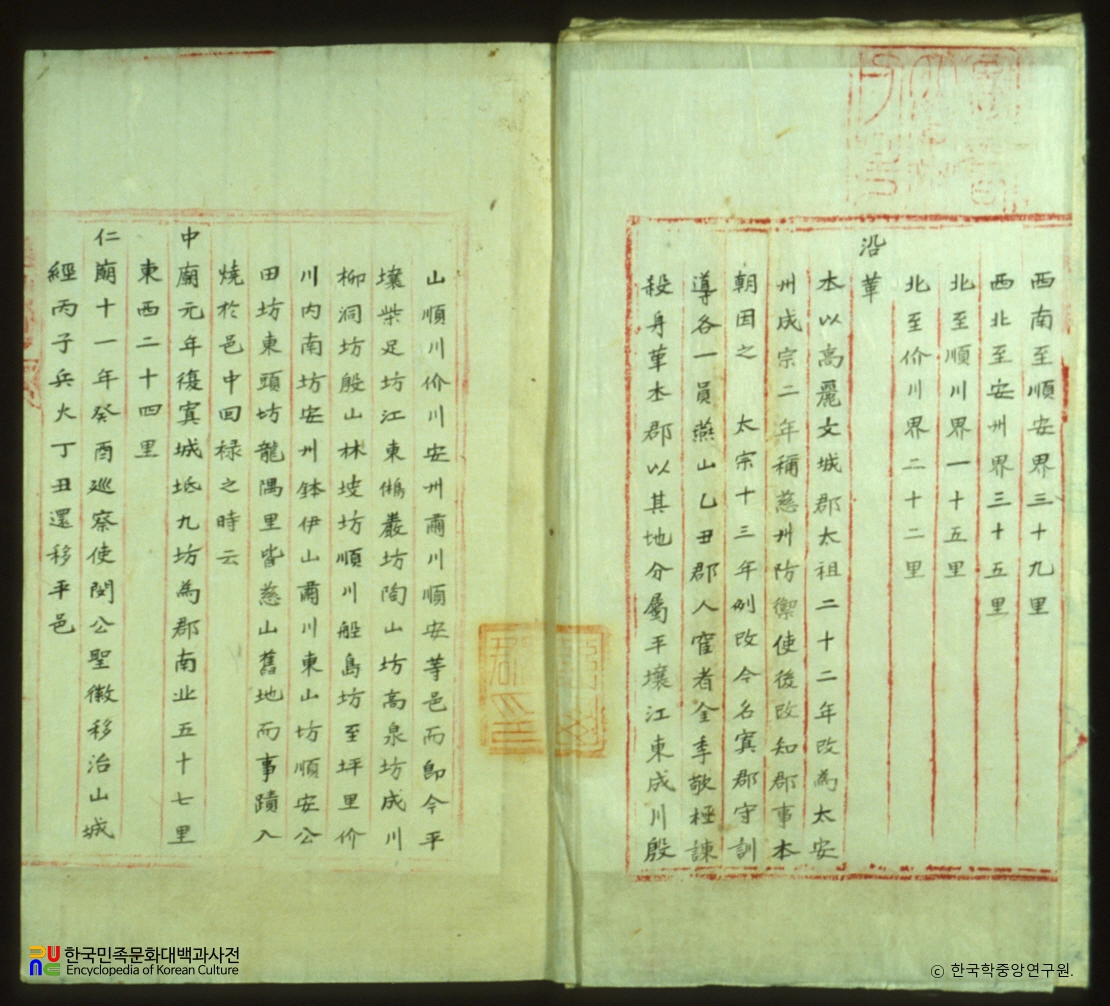 西南至順安界三十九里
西北至安州界三十五里
北至順川界一十五里
北至价川界二十二里
沿革
本以高麗文城郡太祖二十二年改為太安
州成宗二年稱慈州防禦使後改知郡事本
朝因之 太宗十三年例改今名寘郡守訓
導各一員燕山乙丑郡人宦者金季敬極諫
殺身革本郡以其地分屬平壤江東成川殷
山順川价川安州肅川順安等邑而即今平
壤柴足坊江東鵂巖坊陶山坊高泉坊成川
柳洞坊殷山林坡坊順川船島坊至坪里价
川内南坊安州鉢伊山肅川東山坊順安公
田坊東頭坊龍隅里皆慈山舊地而事蹟入
燒於邑中回祿之時云
中廟元年復寘城坻九坊為郡南北五十七里
東西二十四里
仁廟十一年癸酉巡察使閔公聖徽移治山城
經丙子兵火丁丑還移平邑
한국민족문화대백과사전
Encyclopedia of Korean Culture
ⓒ 한국학중앙연구원.